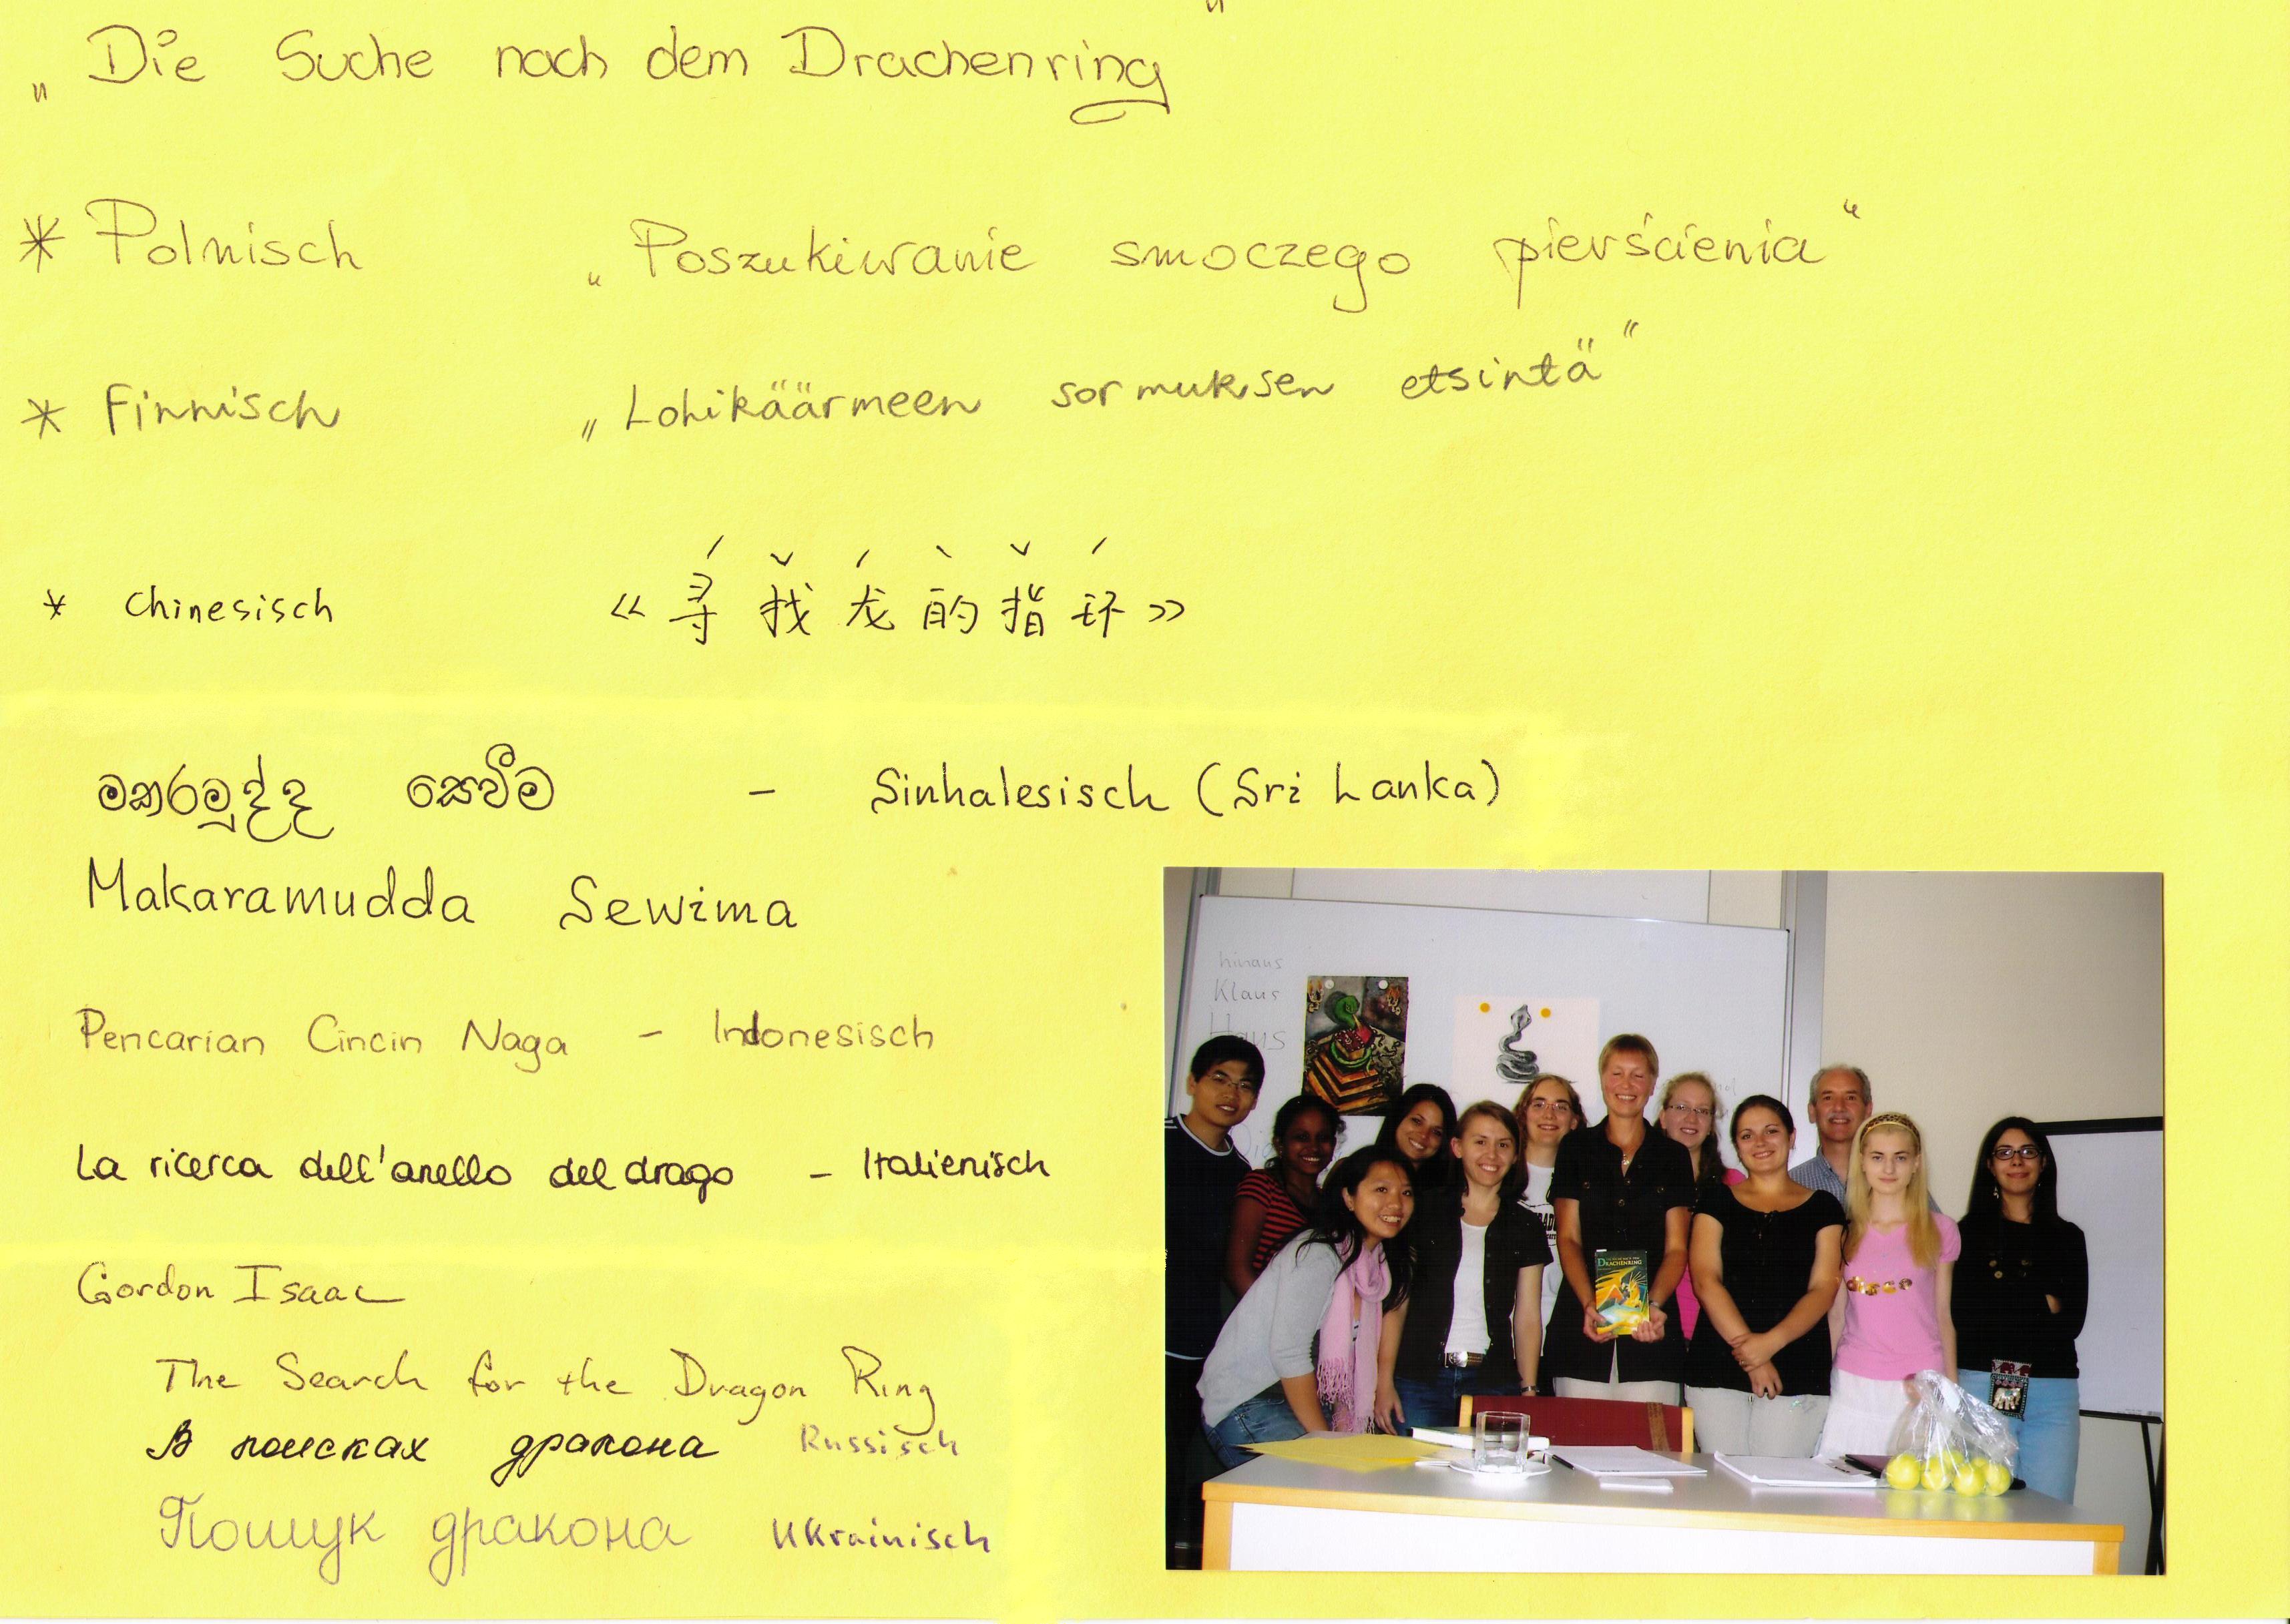 „Die Suche nach dem Drachenring"
* Polnisch „Poszukiwanie smoczego pierścienia"
* Finnisch „Lohikäärmeen sormuksen etsintä"
* Chinesisch 《寻找龙的指环》
මකරමුද්ද සෙවීම - Sinhalesisch (Sri Lanka)
Makaramudda Sewima
Pencarian Cincin Naga - Indonesisch
La ricerca dell'anello del drago - Italienisch
Gordon Isaac
The Search for the Dragon Ring
В поисках дракона Russisch
Пошук дракона Ukrainisch
hinaus
Klaus
Haus
Die
DRACHENRING
disco